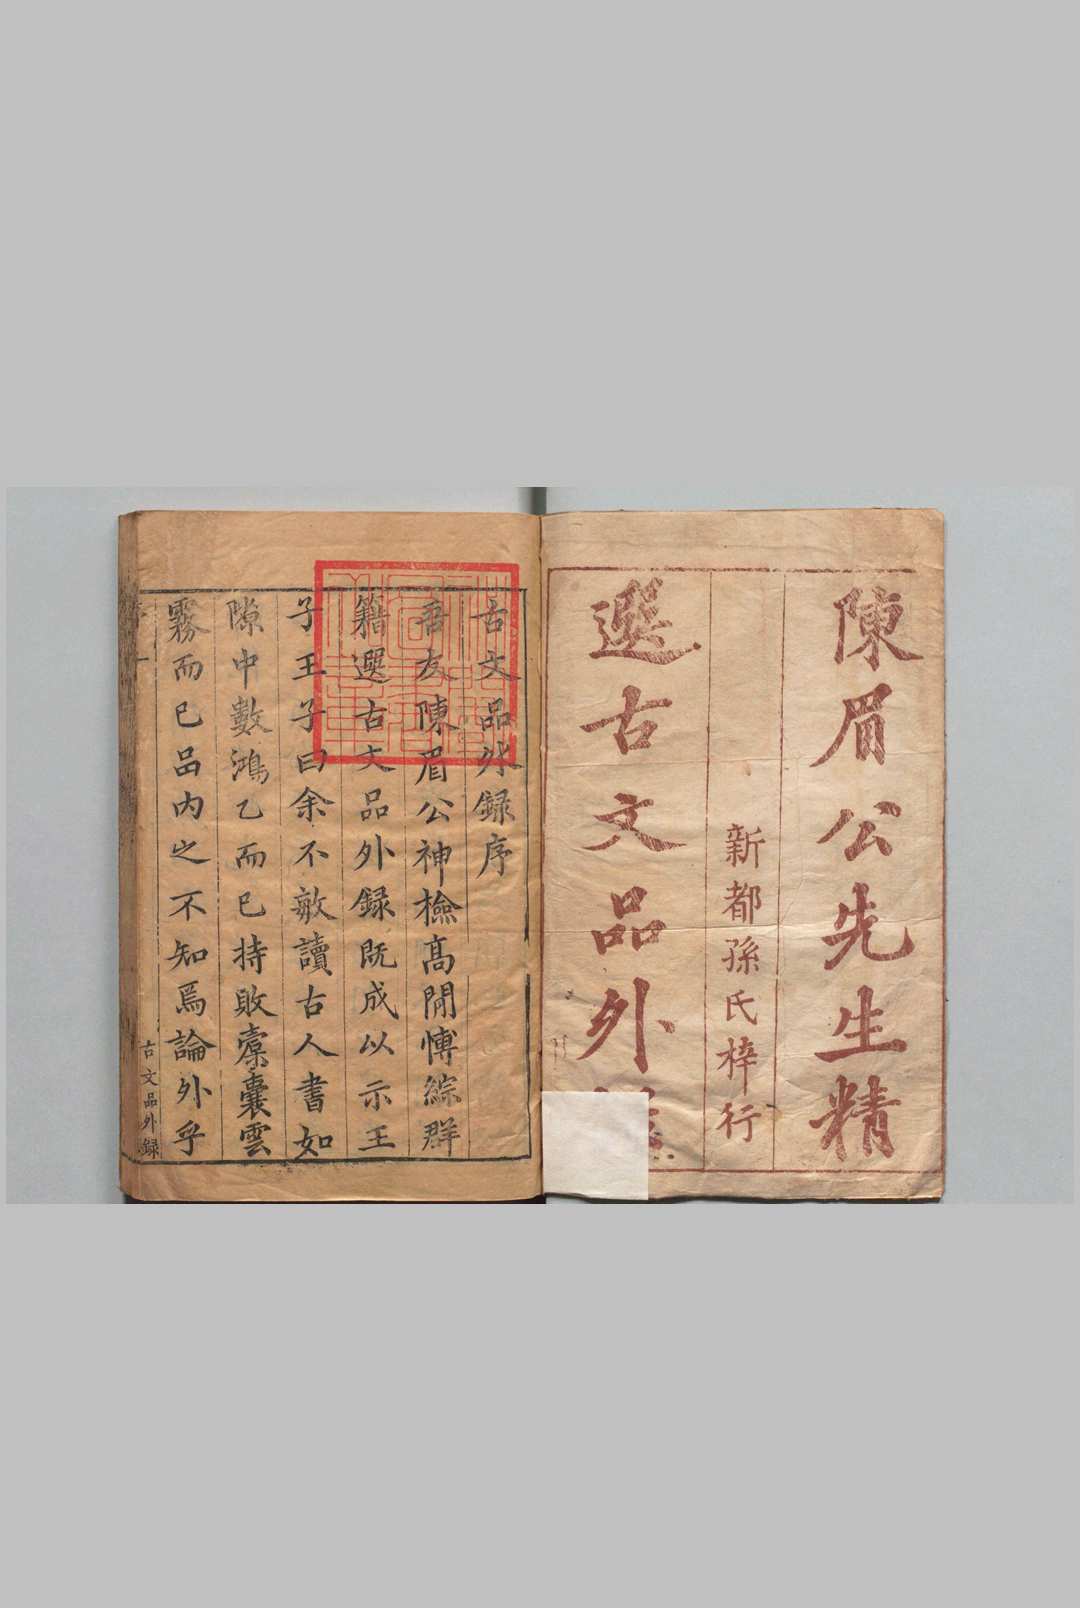 陳眉公先生精
新都孫氏梓行
選古文品外
古文品外録序
吾友陳眉公神檢高閒愽綜群
籍選古文品外録既成以示王
子王子曰余不敏讀古人書如
隙中數鴻乙而已持敗橐囊雲
霧而已品内之不知焉論外乎
古文品外録